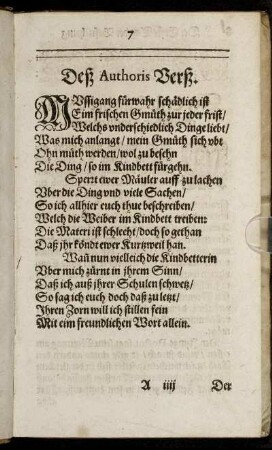 7
Deß Authoris Verß.
MVssigang fürwahr schädlich ist
Eim frischen Gmüth zur jeder frist/
Welchs vnderschiedlich Dinge liebt/
Was mich anlangt/ mein Gmüth sich vbt
Ohn müth werden/ wol zu besehn
Die Ding/ so im Kindbett fürgehn.
Sperzt ewer Mäuler auff zu lachen
Vber die Ding vnd viele Sachen/
So ich allhier euch thue beschreiben/
Welch die Weiber im Kindbett treiben:
Die Materi ist schlecht/ doch so gethan
Daß jhr köndt ewer Kurtzweil han.
Wañ nun vielleich die Kindbetterin
Vber mich zürnt in jhrem Sinn/
Daß ich auß jhrer Schulen schwetz/
So sag ich euch doch daß zu letzt/
Ihren Zorn will ich stillen fein
Mit eim freundlichen Wort allein.
A iiij Der